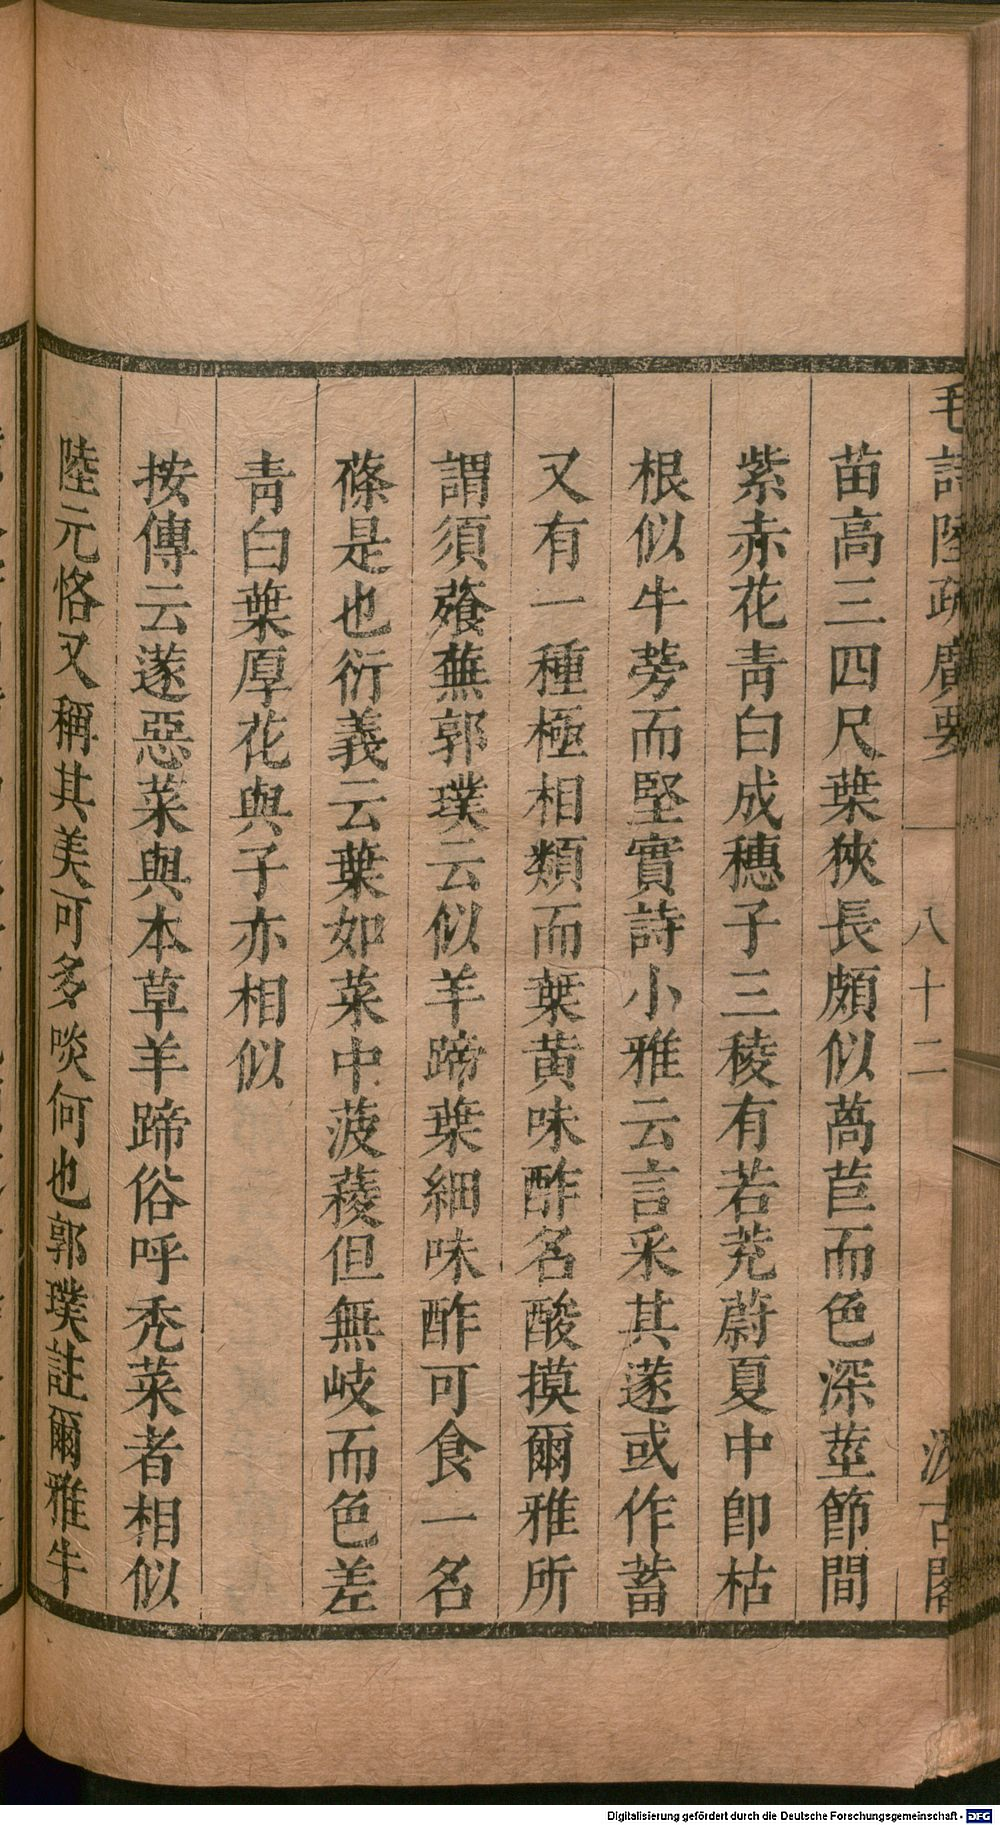 毛詩陸疏廣要 八十二 汲古閣
苗高三四尺葉狹長頗似萵苣而色深莖節間
紫赤花青白成穗子三稜有若茺蔚夏中卽枯
根似牛蒡而堅實詩小雅云言采其蓫或作蓄
又有一種極相類而葉黃味酢名酸摸爾雅所
謂須薞蕪郭璞云似羊蹄葉細味酢可食一名
蓨是也衍義云葉如菜中菠薐但無岐而色差
青白葉厚花與子亦相似
按傳云蓫惡菜與本草羊蹄俗呼禿菜者相似
陸元恪又稱其美可多啖何也郭璞註爾雅牛
Digitalisierung gefördert durch die Deutsche Forschungsgemeinschaft - DFG